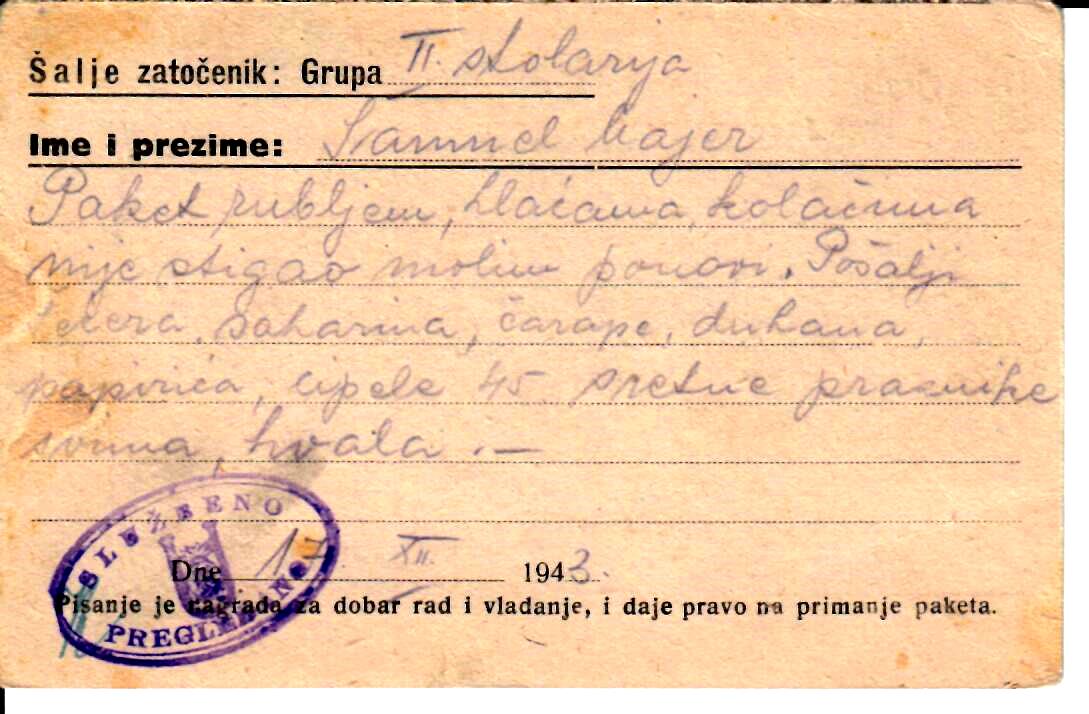 Šalje zatočenik: Grupa II. stolarija
Ime i prezime: Samuel Majer
Paket rubljem, hlaćama, kolačima
nije stigao molim ponovi. Pošalji
saharina, čarape, duhana,
papirića, cipele 45 sretne praznike
svima, hvala . —
SLUŽBENO
Dne 17 XII. 1943.
Pisanje je nagrada za dobar rad i vladanje, i daje pravo na primanje paketa.
PREGLEDANO